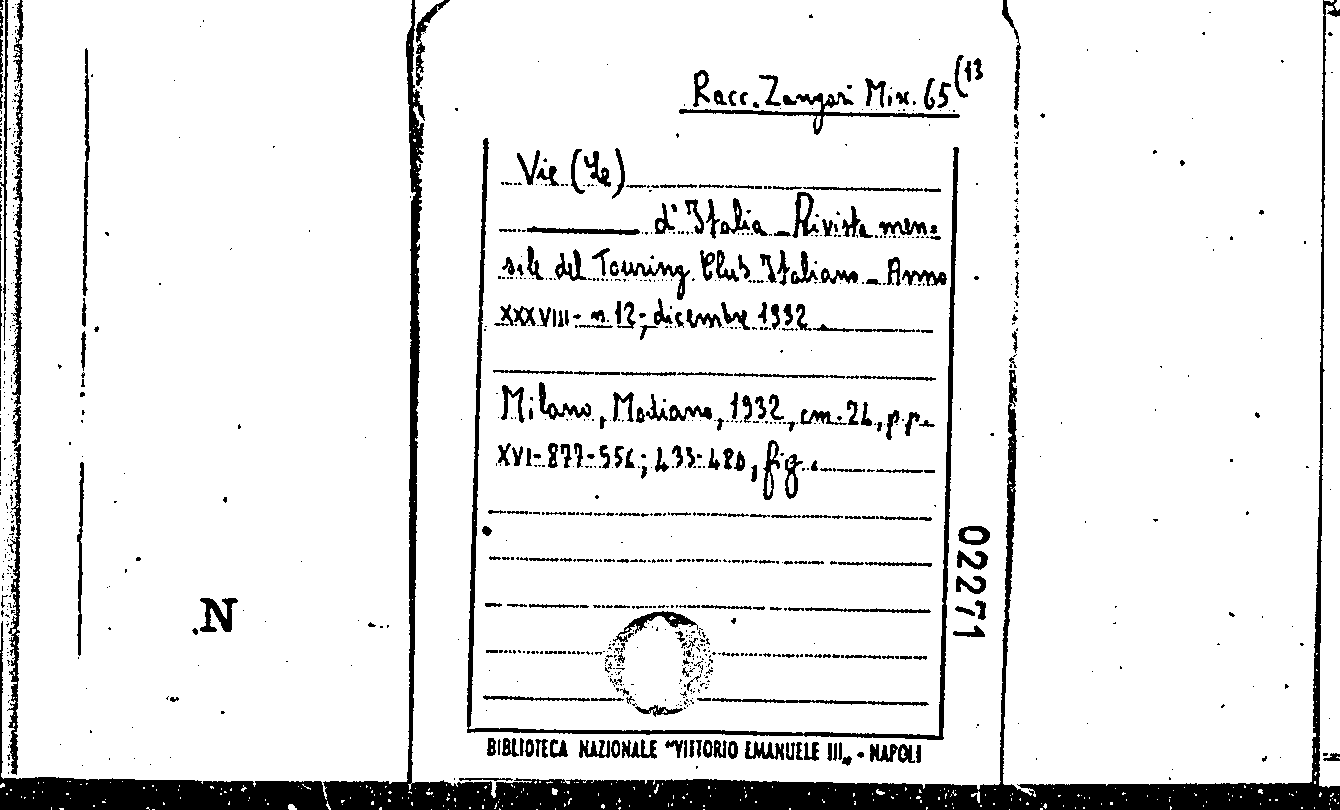 Racc. Zangari Mix. 65 (13
Vie (Le)
d'Italia - Rivista men=
sile del Touring Club Italiano - Anno
XXXVIII - n. 12; dicembre 1932
Milano, Modiano, 1932, cm. 24, p.p.
XVI-877-556; 433-480, fig.
02271
N
BIBLIOTECA NAZIONALE "VITTORIO EMANUELE III„ - NAPOLI